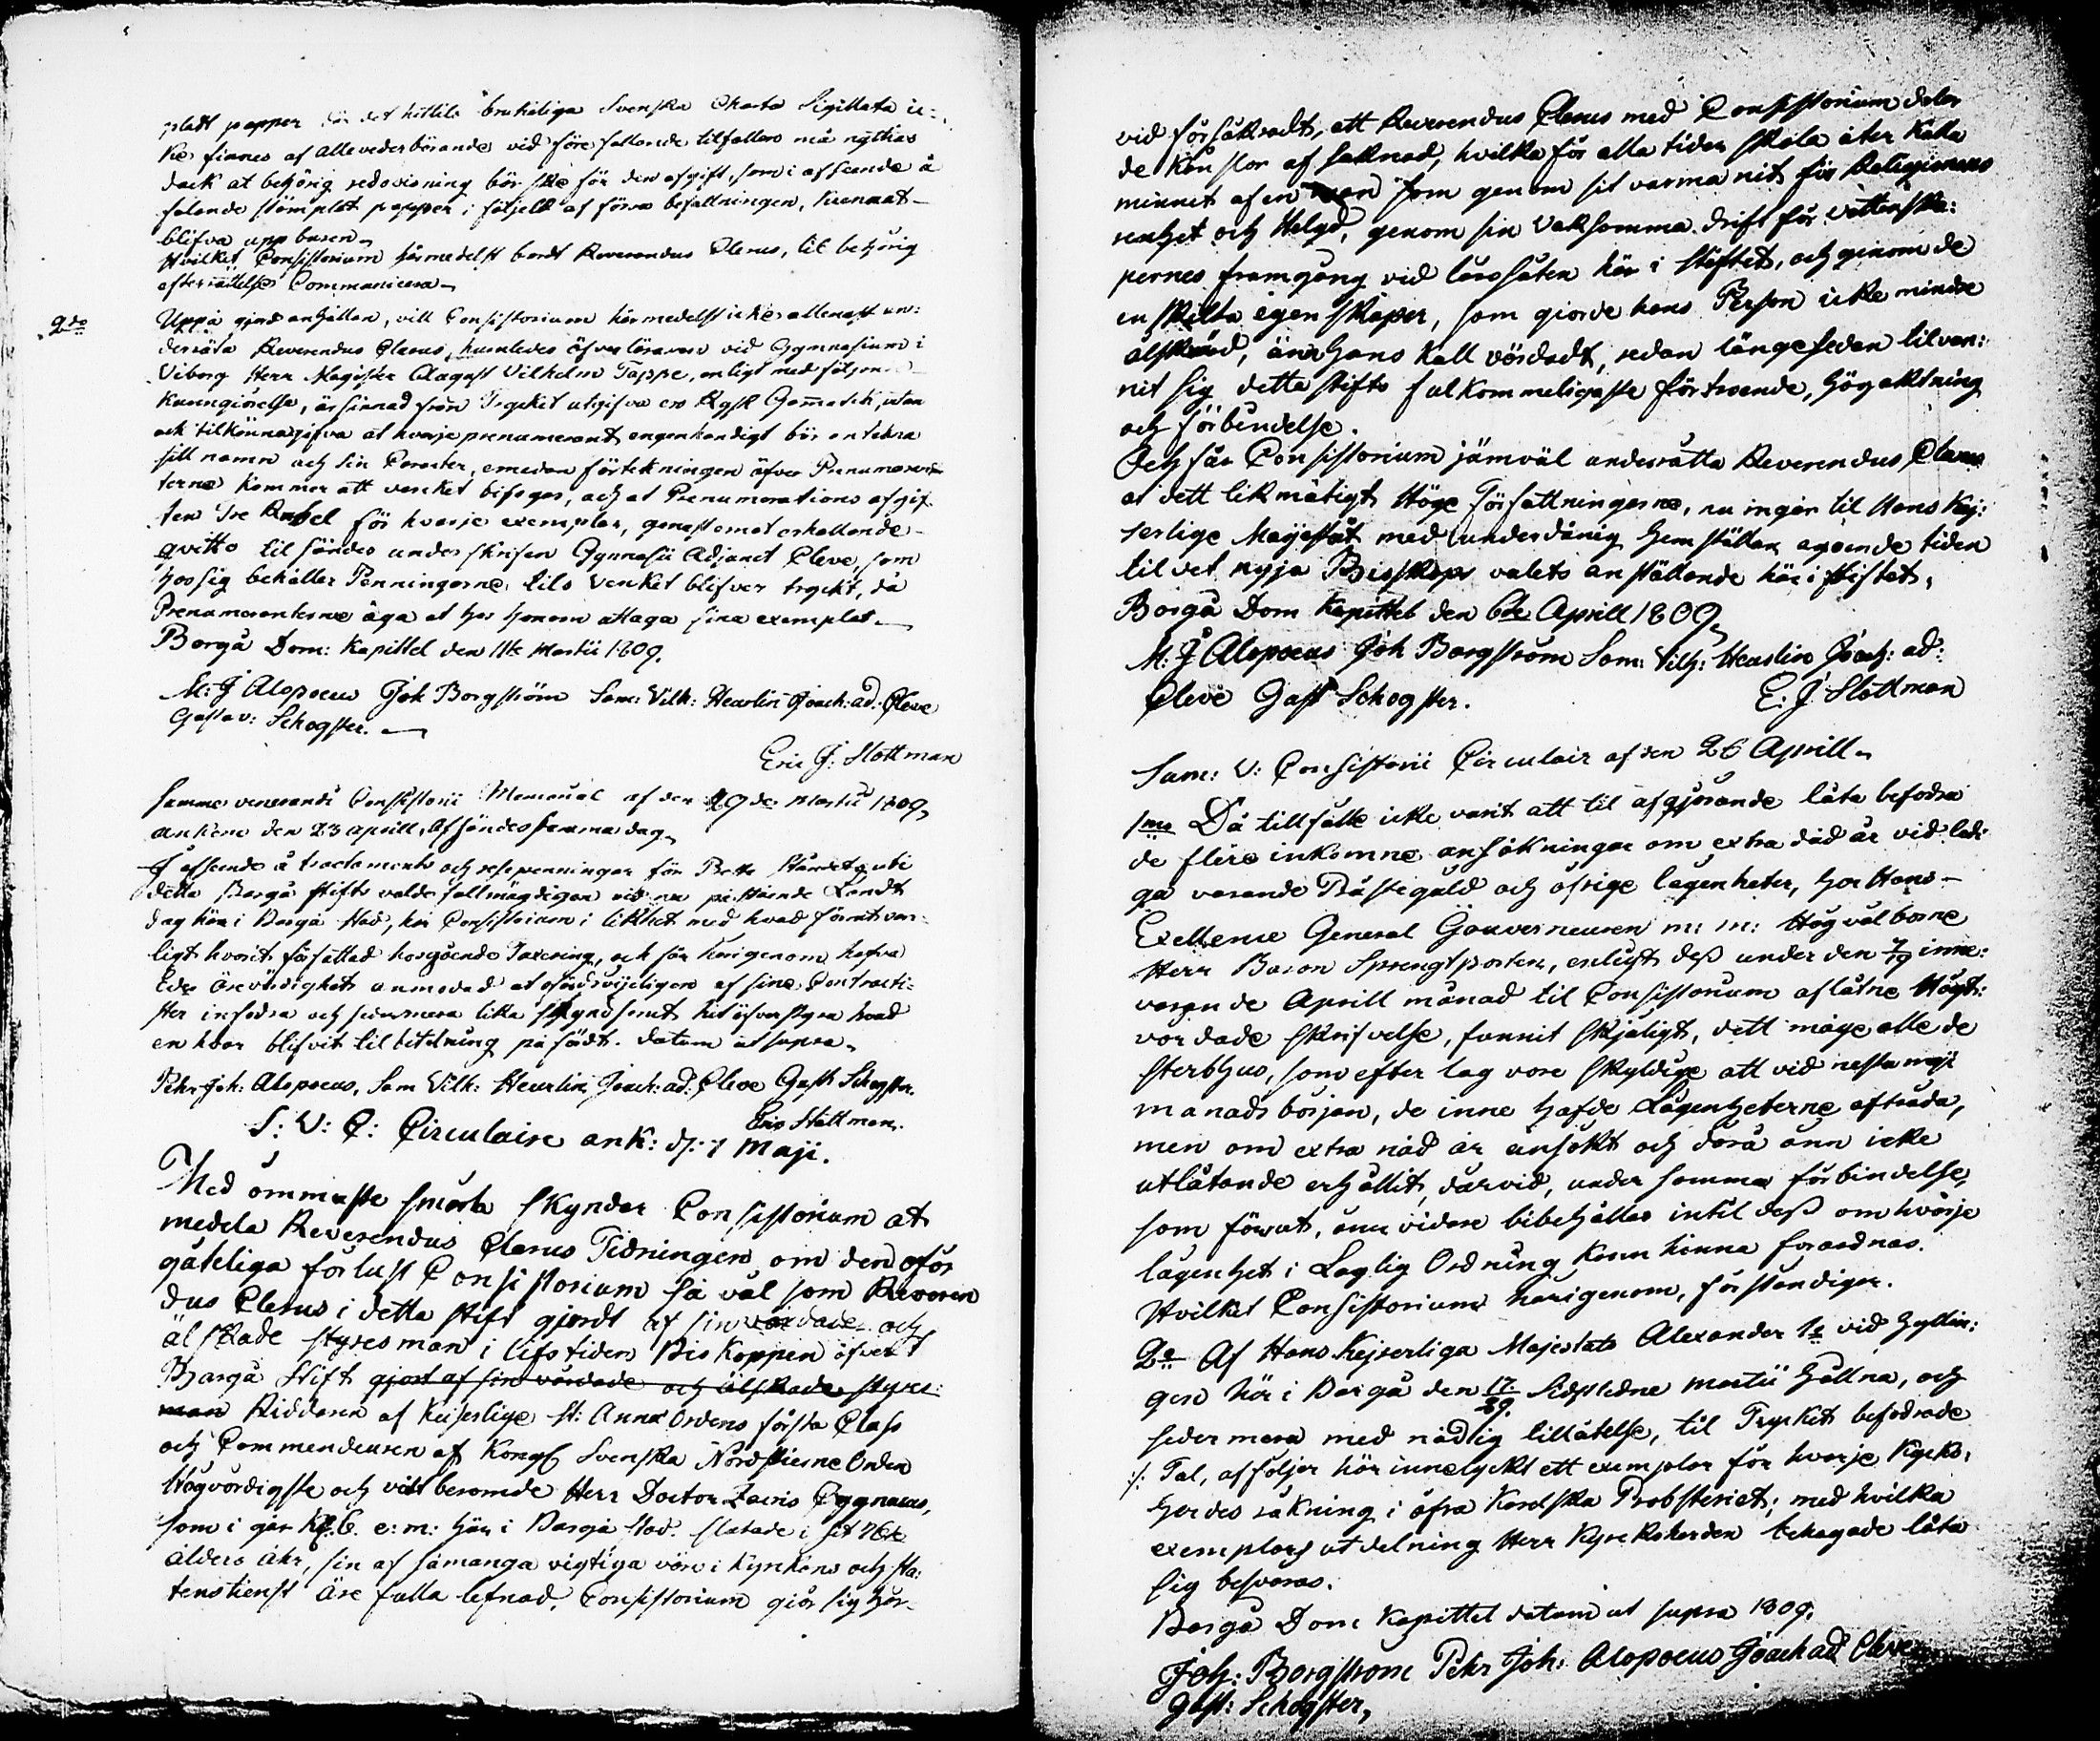 pladt papper för det hittils brukeliga Svenska Charta Sigillata ic=
ke finnes af alle vederbörande vid före fallande tilfällen må nyttias
dock at behörig redovisning bör ske för den afgift, som i afseende å
felande stömplat papper, i följe af förra befallningen, kunnat
blifva uppburen
Hvilket Consistorium härmedelst bordt Reverendus Clerus, til behörig
efterrättelse Communicera
2do Uppå gjord anhållan, vill Consistorium härmedelst icke allenast un:
derräta Reverendus Clerus, huruledes öfver läraren vid Gymnasium i
Viborg Herr Magister August Vilhelm Tappe, enligt med följande
kunngiörelse, är sinnad från Trycket utgifva en Rysk Gramatik, utan
ock tilkännagifva at hvarje prenumerant engenhändigt bör anteckna
sitt namn och sin Caracter, emedan förtekningen öfver Prenumeran
terne kommer att verket bifogas, och at Prenumerations afgif
ten Tre Rubel för hvarje exemplar, genast emot erhållande
qvitto til sändes underskrifven Gymnasii Adjunct Cleve, som
hos sig behåller Penningarne, tils Verket blifver trykt, då
Prenumeranterne äga at hos honom attaga sina exemplar
Borgå Dom: Kapittel den 11te Martii 1809.
M: J Alopoeus Joh Borgström Sam: Vilh: Heurlin Joach: ad: Cleve
Gustav: Schogster.
Eric J: Slottman
Samma venerandi Consistorii Memorial af den 29de Martii 1809,
ankom den 23 aprill, Afsändes samma dag
I afseende å tractamente och resepenningar för Preste Ståndets uti
detta Borgå stifts valde fullmägdigen vid nu påstående Landt
dag här i Borgå stad, har Consistorium i likhet med hvad förut van
ligt hvarit författad hosgående Taxering, och får härigenom hafva
Eder ärevördighet anmodad at ofördröjeligen af sine Contracti:
ster infodra och sedermera lika skyndsamt hitöfverstyra hvad
en hvar blifvit til betalning påfördt. datum ut supra
Pehr Joh: Alopoeus, Sam Vilh: Heurlin, Joach: ad: Cleve Gust Schogster.
Eric Slottman.
S: V: C: Circulaire ank: d: 7 Maji.
Med ömmaste smärta skyndar Consistorium at
medela Reverendus Clerus Tidningen om den oför
gäteliga förlust Consistorium så väl som Reveren
dus Clerus i detta stift gjordt af sin vördade och
älskade styresman i lifstiden Biskoppen öfver
Borgå Stift gjort af sin vördade och älskade styres:
man Riddaren af Keiserlige St: Anna Ordens första Class
och Commendeuren af Kongl Svenska Nordstierne Orden
Högvördigste och vidt beromde Herr Doctor Zacris Cygnaeus,
som i går Kl. 6. e: m: här i Borgå stad. slutade i sit 76te
ålders åhr, sin af så manga vigtiga värv i Kyrkans och sta:
tens tienst äre fulla lefnad. Consistorium giör sig här
vid försäkradt, att Reverendus Clerus med Consistorium delar
de känslor af saknad, hvilka för alla tider skola åter kalla
minnet af en man som genom sit varma nit för Religionens
renhet och Helgd, genom sin vaksamma drift för vettenska:
pernes framgång vid lärosäten här i stiftet, och genom de
enskilta egenskaper, som giorde hans Person icke mindre
älskad, än hans Kall vördadt, redan längesedan tilvun:
nit sig detta stifts fulkommeligaste förtroende, högaktning
och förbindelse.
Och får Consistorium jämväl underrätta Reverendus Clerus
at dett likmätigt Höge Författningarne, nu ingår til Hans Kej:
serlige Majestät med underdånig hemställan agående tiden
til det nyja Biskops valets anställande här i stiftet,
Borgå Dom Kapittel den 6te Aprill 1809
M: J Alopoeus Joh Borgström Sam: Vilh: Heurlin Joach: ad:
Cleve Gust Schogster.
E. J Slottman
Sam: V: Consistorii Circulair af den 26 Aprill
1mo Då tillfälle icke varit att til afgjörande låta befodra
de flere inkomne ansökningar om extra nåd år vid ledi
ga varande Prästegäld och öfrige lägenheter, hos Hans
Exellence General Gouverneuren m: m: Högvälborne
Herr Baron Sprengtporten, enligt dess under den 7/19 inne:
varande Aprill månad til Consistorium aflåtne Högt:
vordade skrifvelse, funnit skjäligt, dett måge alle de
sterbhus, som efter lag vore skyldige att vid nesta maji
manads början, de inne hafde Lägenheterne afträda,
men om extra nåd år ansökt och därå änn icke
utlåtande erhållit, därvid, under samma förbindelse,
som förrut, änn vidare bibehållas intil dess om hvarje
lägenhet i Laglig Ordning kunn hinna förordnas.
Hvilket Consistorium härigenom, förständigar.
2do Af Hans Kejserliga Majestäts Alexander 1s vid hyllin:
gen här i Borgå den 17/29 sidstledne martii hållna, och
sedermera med nådig tillåtelse, til Trycket befodrade
:/: Tal, afföljer här innelyckt ett exemplar för hvarje Kyrko:
herdes räkning i öfra Karelska Probsteriet; med hvilka
exemplars utdelning Herr Kyrckoherden behagade låta
sig besväras.
Borgå Dom Kapittel datum ut supra 1809.
Joh: Borgstrom Pehr Joh: Alopoeus Joach ad Cleve
Gust: Schogster,